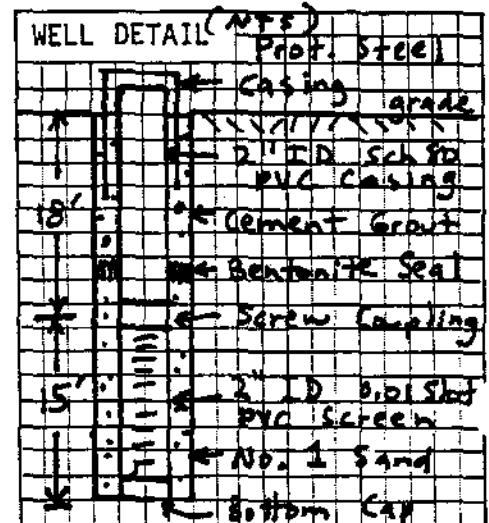 WELL DETAIL (NTS)
Prot. Steel
Casing
grade
2" ID Sch 80
PVC Casing
18'
Cement Grout
Bentonite Seal
Screw Coupling
5'
2" ID 0.01 Slot
PVC Screen
No. 1 Sand
Bottom Cap